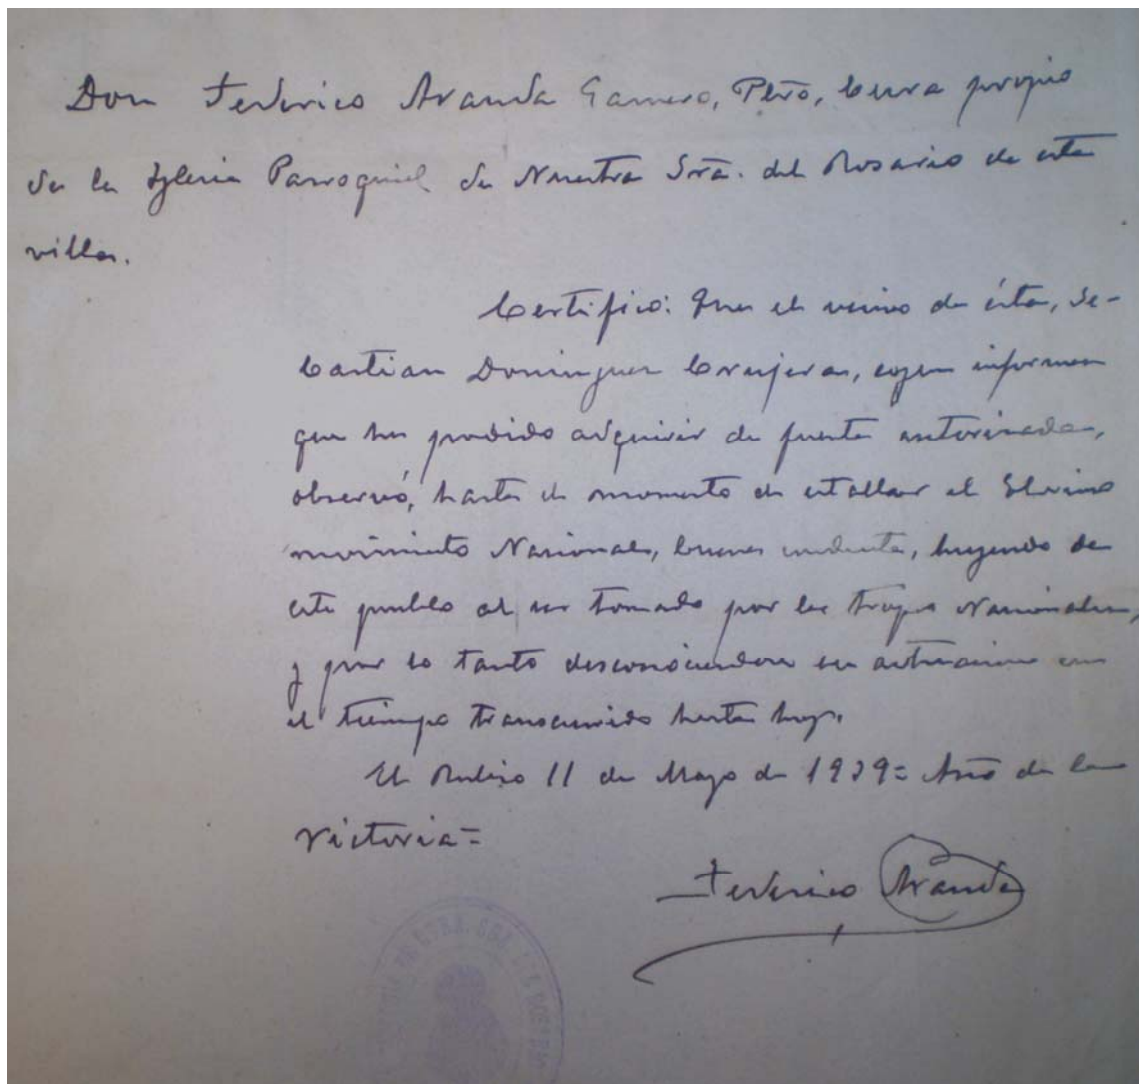 Don Federico Aranda Gamero, Pbro, Cura propio
de la Iglesia Parroquial de Nuestra Sra. del Rosario de esta
villa.
Certifico: Que el vecino de ésta, Se-
bastian Dominguez, informes
que he podido adquirir de fuentes autorizadas,
observó, hasta el momento de estallar el Glorioso
movimiento Nacional, buena conducta, huyendo de
este pueblo al ser tomado por las tropas Nacionales,
y por lo tanto desconociendose su actuacion en
el tiempo transcurrido hasta hoy.
El Rubio 11 de Mayo de 1939= Año de la
Victoria=
Federico Aranda